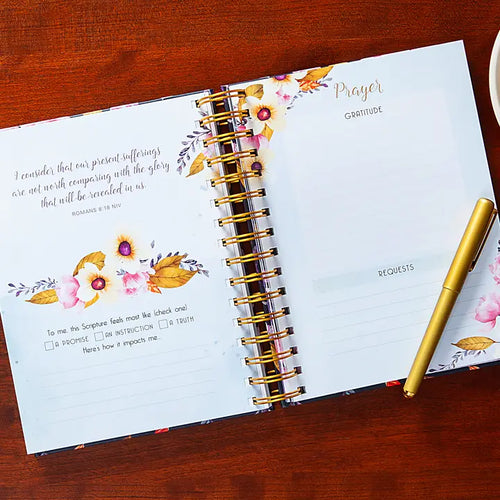 I consider that our present sufferings
are not worth comparing with the glory
that will be revealed in us.
ROMANS 8:18 NIV
To me, this Scripture feels most like (check one)
A PROMISE AN INSTRUCTION A TRUTH
Here's how it impacts me...
Prayer
GRATITUDE
REQUESTS